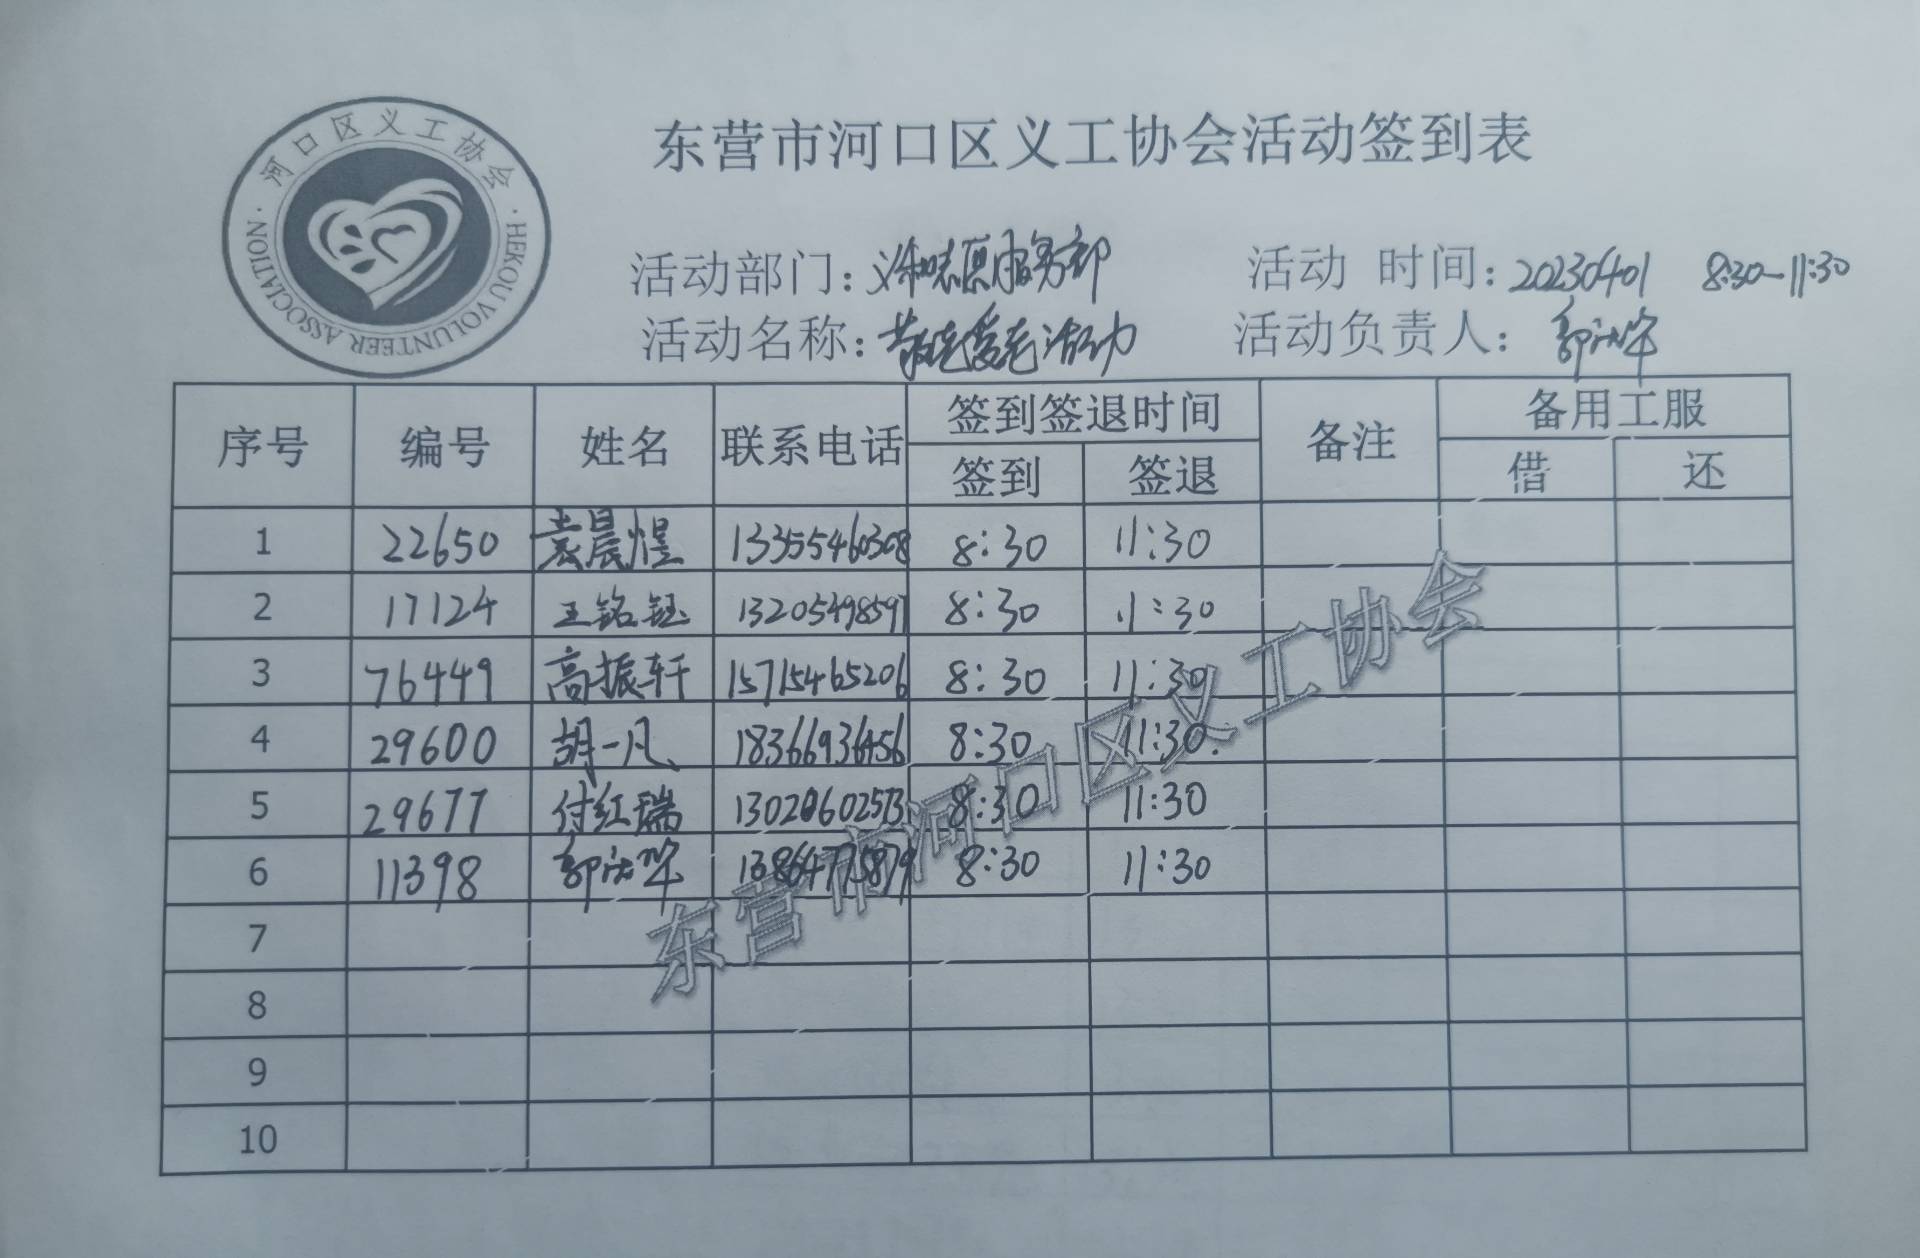 河口区义工协会
HEKOU VOLUNTEER ASSOCIATION
东营市河口区义工协会活动签到表
活动部门：义和志愿服务部 活动 时间：20230401 8:30-11:30
活动名称：敬老爱老活动 活动负责人：郭
序号 编号 姓名 联系电话 签到签退时间 备注 备用工服
签到 签退 借 还
1 22650 袁晨煜 13355460308 8:30 11:30
2 17124 王铭钰 13205498597 8:30 11:30
3 76449 高振轩 15715465206 8:30 11:30
4 29600 胡一凡 18366936456 8:30 11:30
5 29677 付红瑞 8:30 11:30
6 11398 郭 13864775879 8:30 11:30
7
8
9
10
东营市河口区义工协会